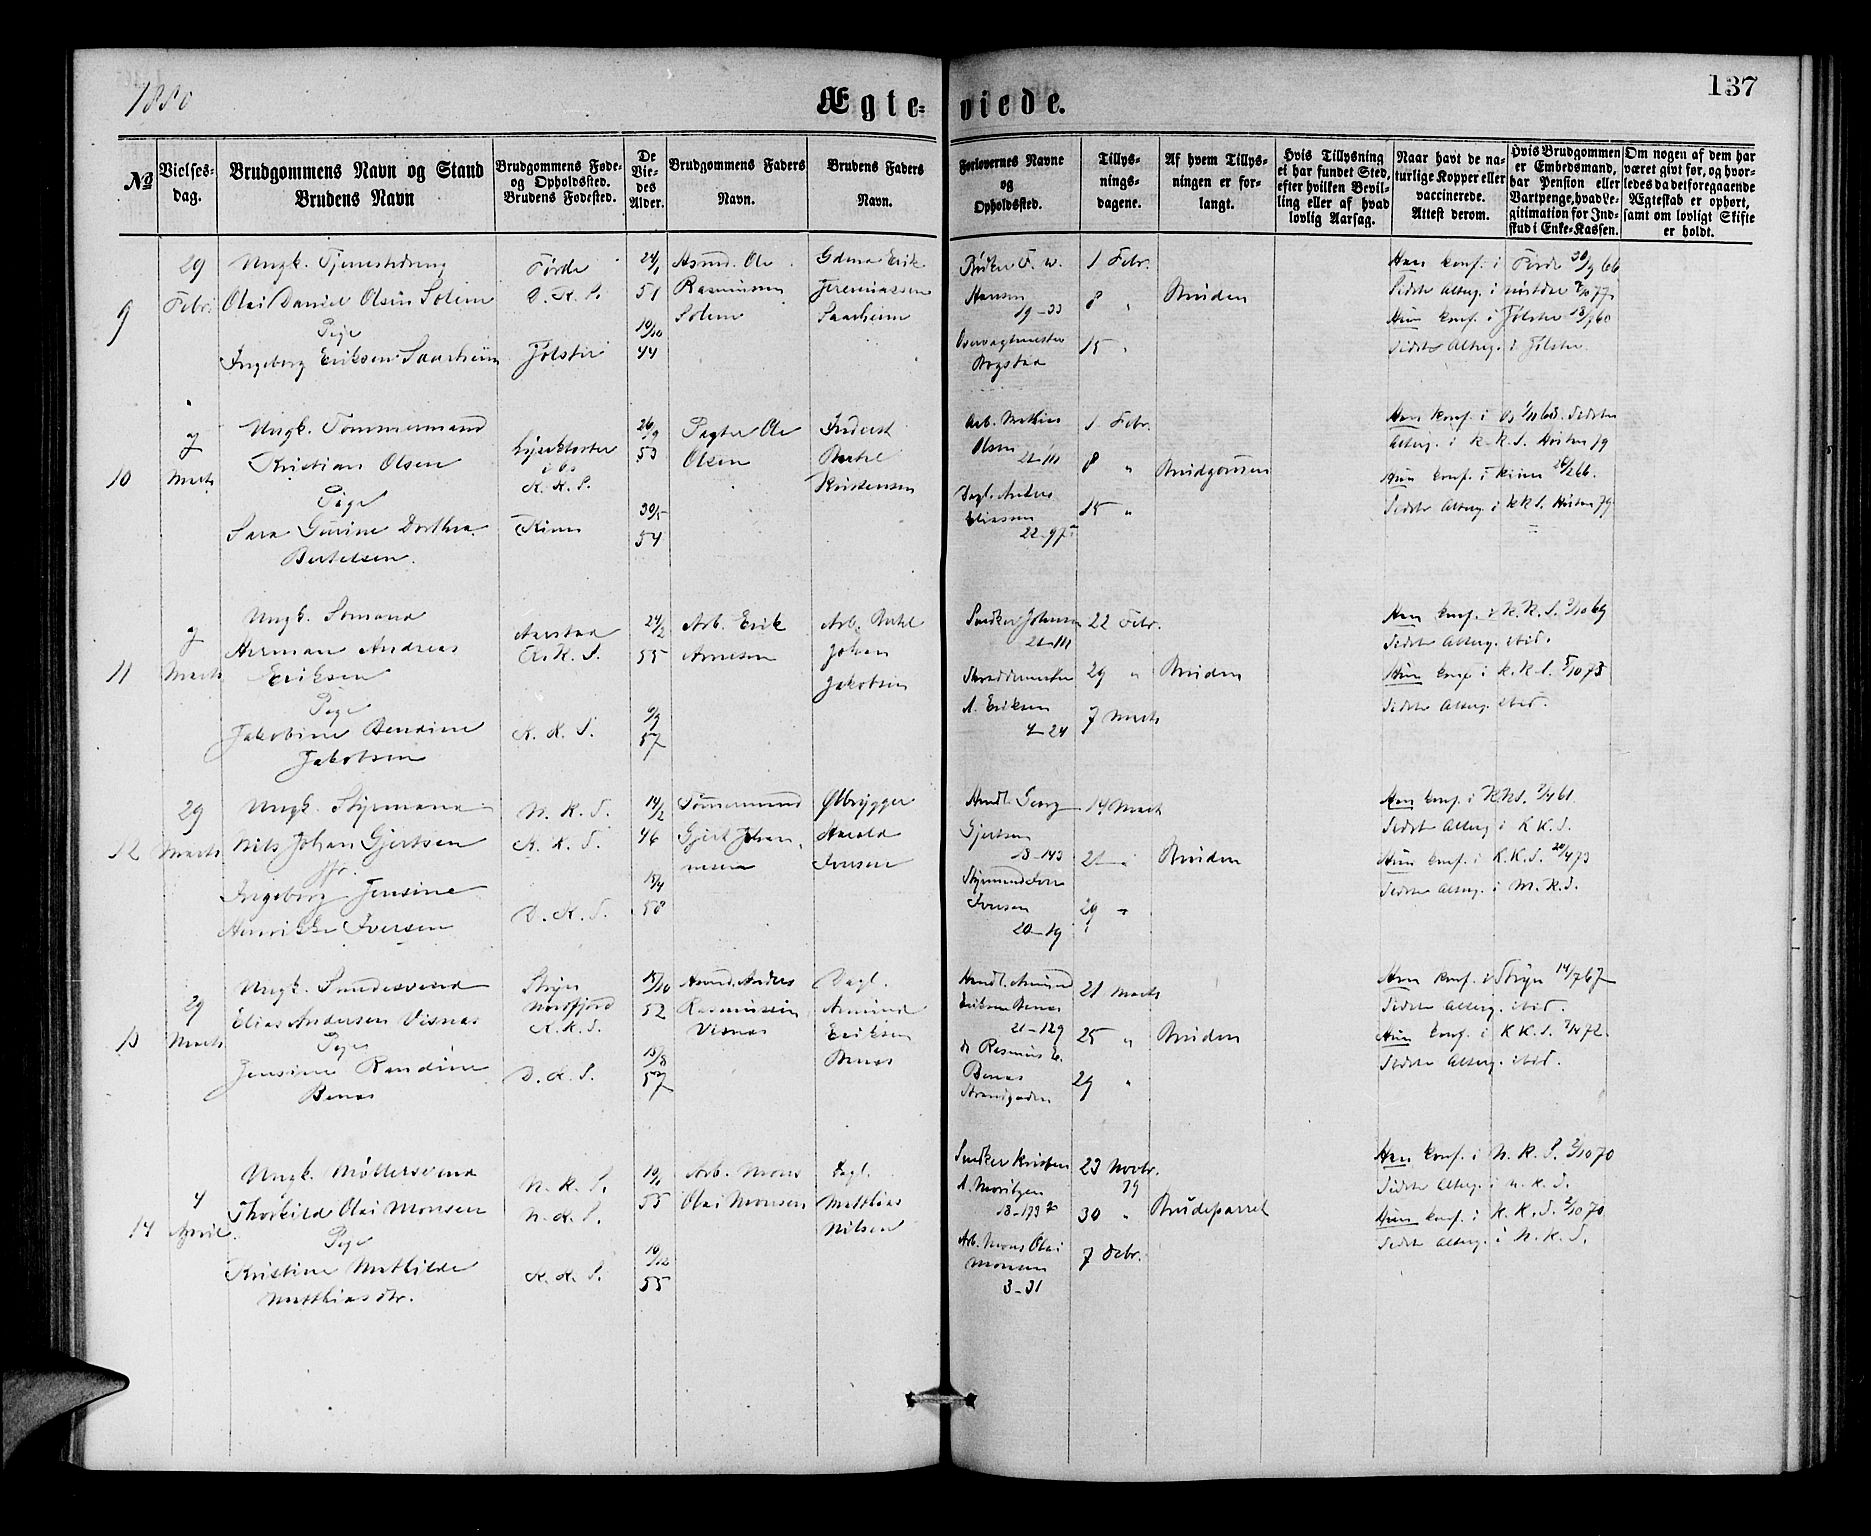 1880
Ægteviede.
137
No
Vielsesdag.
Brudgommens Navn og Stand
Brudens Navn
Brudgommens Føde- og Opholdssted.
Brudens Fødested.
De Viedes Alder.
Brudgommens Faders Navn.
Brudens Faders Navn.
Forlovernes Navne og Opholdssted.
Tillysningsdagene.
Af hvem Tillysningen er forlangt.
Hvis Tillysning ei har fundet Sted, efter hvilken Bevilling eller af hvad lovlig Aarsag.
Naar havt de naturlige Kopper eller vaccinerede. Attest derom.
Hvis Brudgommen er Embedsmand, har Pension eller Vartpenge, hvad Legitimation for Indskud i Enke-Kassen.
Om nogen af dem har været givt før, og hvorledes da det foregaaende Ægteskab er ophørt, samt om lovligt Skifte er holdt.
9
29 Febr.
Ungk. Tjenestedreng
Olai Daniel Olsen Solem
Pige
Ingeborg Eriksen Saarheim
Førde
D. K. S.
Jølster
24/1 51
10/10 44
Ole
Rasmussen
Solem
Erik
Jeremiassen
Saarheim
F. W.
Hansen
19-33
Bogstad
1 Febr.
8 "
15 "
Bruden
Han conf. i Førde 30/9 66
Sidste Alterg. i
Hun conf. i Jølster 60
Sidste Alterg. i Jølster
10
7 Marts
Ungk. Tømmermand
Kristian Olsen
Pige
Sara Gurine Dorthea
Bertelsen.
K. K. S.
Kinn
26/9 53
30/5 54
Ole
Olsen
Inderst
Bertel
Kristensen
Arb. Mathias
Olsen
21-111
Dagl. Anders
Eliassen
22-97
1 Febr.
8 "
15 "
Brudgommen
Han conf. i Os Sidste
Alterg. i K. K. S. Høsten 79
Hun conf. i Kinn 66.
Sidste Alterg. i K. K. S. Høsten 79
11
7 Marts
Ungk. Sømand
Herman Andreas
Eriksen
Pige
Jakobine Bendine
Jakobsen
Aarstad
K. K. S.
24/2 55
6/9 57
Arb. Erik
Arnesen
Arb. Bertel
Johan
Jakobsen
Snedker Johnsen
21-111
Skræddermester
A. Eriksen
4-24
22 Febr.
29 "
7 Marts
Bruden
Han conf. i K. K. S. 69
Sidste Alterg. ibid.
Hun conf. i K. K. S. 5/10 73
Sidste Alterg. ibid.
12
29 Marts
Ungk. Styrmand
Nils Johan Gjertsen
Ingeborg Jensine
Henrikke Iversen
N. K. S.
K. K. S.
D. K. S.
14/2 46
15/4 58
Tømmermand
Gjert Johannesen
Ølbrygger
Harald
Iversen
Handl. Georg
Gjertsen
13-143
Styrmand Iver
Iversen
20-19
14 Marts
21 "
29 "
Bruden
Han conf. i K. K. S. 61
Sidste Alterg. i K. K. S.
Hun conf. i K. K. S. 20/4 73
Sidste Alterg. i N. K. S.
13
29 Marts
Ungk.
Elias Andersen Visnæs
Pige
Jensine Randine
Benæs
Stryn
Nordfjord
K. K. S.
D. K. S.
15/10 52
13/8 57
Anders
Rasmussen
Visnæs
Dagl.
Amund
Eriksen
Benæs
Handl. Amund
Eriksen Benæs
21-129
do Rasmus E.
Benæs
Strandgaden
21 Marts
25 "
29 "
Bruden
Han conf. i Stryn 14/7 67
Sidste Alterg. ibid.
Hun conf. i K. K. S. 7/4 72.
Sidste Alterg. ibid.
14
4 April
Ungk. Møllersvend
Thorkild Olai Monsen
Pige
Kristine Mathilde
Matthiasdtr.
N. K. S.
N. K. S.
K. K. S.
10/1 55
10/12 55
Arb. Mons
Olai Monsen
Dagl.
Matthias
Nilsen
Snedker Kristen
A. Moritzen
Arb. Mons Olai
Monsen
3-31
23 Novbr. 79
30 "
7 Debr.
Brudeparret
Han conf. i N. K. S. 2/10 70
Sidste Alterg. i N. K. S.
Hun conf. i K. K. S. 2/10 70
Sidste Alterg. i N. K. S.